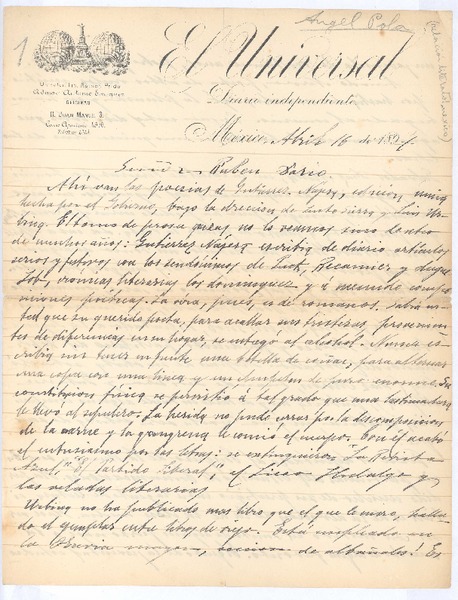 1
Angel Pola
El Universal
Diario independiente
México, Abril 16 de 189
Señor Rubén Darío.
Ahí van las poesías de Gutiérrez Nájera, edición
hecha por el Gobierno, bajo la dirección de Justo Sierra y Luis Ur-
bina. El tomo de prosa quizás no lo veamos sino dentro
de muchos años: Gutiérrez Nájera escribía de diario artículos
serios y festivos con los seudónimos de Puck, Recamier y duque
Job, crónicas literarias los domingos y a menudo compo-
siciones poéticas. La obra, pues, es de romanos. Sabrá us-
ted que su querido poeta, para acallar sus tristezas, provenien-
tes de diferencias en su hogar, se entregó al alcohol. Nunca es-
cribía sin tener enfrente una botella de coñac, para alternar
una copa con una línea y un puro enorme. Su
constitución física se a tal grado que una lastimadura
le llevó al sepulcro. La herida no pudo cerrar por la descomposición
de la carne y la gangrena le comió el cuerpo. Con él acabó
el entusiasmo por las letras: se extinguieron "La Revista
Azul," "El Partido Liberal," el Liceo Hidalgo y
las veladas literarias
Urbina no ha publicado más libro que el que le mando, halla-
do el ejemplar entre libros de viejo. Está empleado en
la de albañales! Es